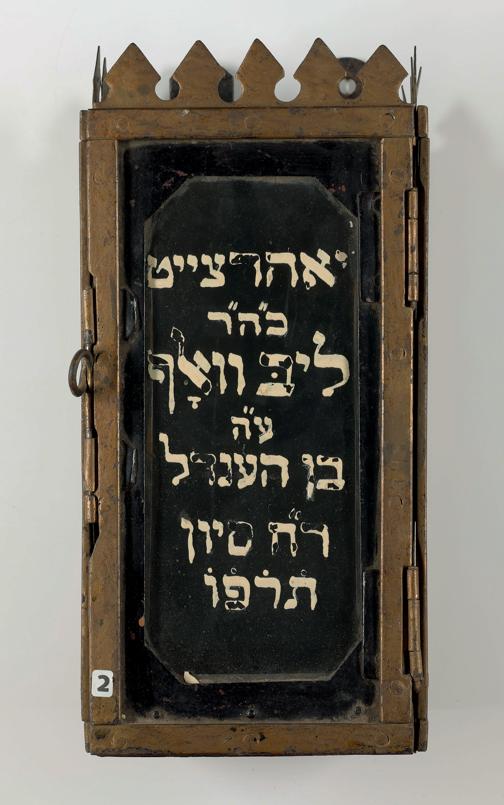 יאהרצייט
כ"ה"ר
ליב וואָף
ע"ה
בן הענדל
ר"ח סיון
תרפו
2